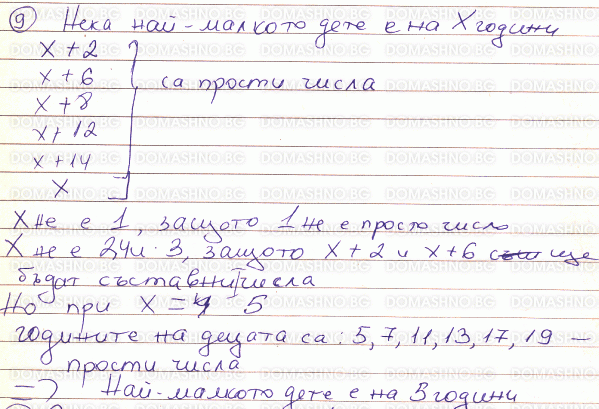 9 Нека най-малкото дете е на X години
x + 2
x + 6
са прости числа
x + 8
x + 12
x + 14
x
X не е 1, защото 1 не е просто число
X не е 2, 4 и 3, защото x + 2 и x + 6 ще
бъдат съставни числа
Но при x = 5
годините на децата са: 5, 7, 11, 13, 17, 19 –
прости числа
=> Най-малкото дете е на 5 години